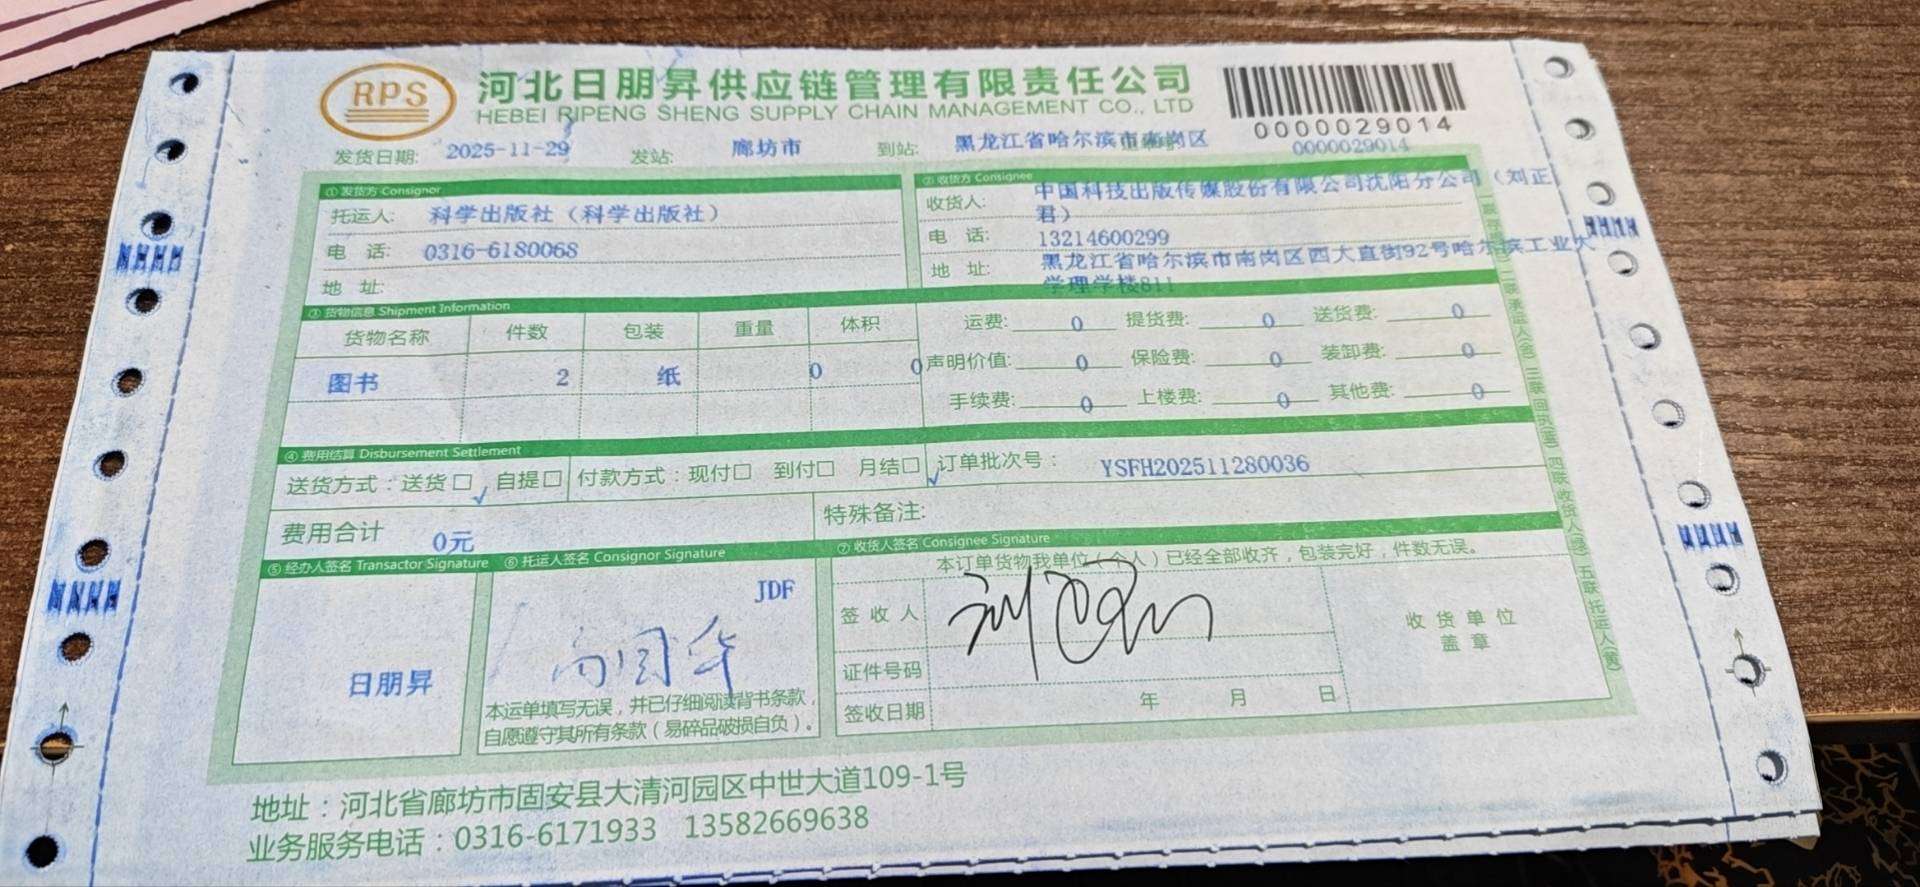 RPS
河北日朋昇供应链管理有限责任公司
HEBEI RIPENG SHENG SUPPLY CHAIN MANAGEMENT CO., LTD
0000029014
0000029014
发货日期: 2025-11-29 发站: 廊坊市 到站: 黑龙江省哈尔滨市南岗区
① 发货方 Consignor
托运人: 科学出版社（科学出版社）
电 话: 0316-6180068
地 址:
② 收货方 Consignee
收货人: 中国科技出版传媒股份有限公司沈阳分公司（刘正
君）
电 话: 13214600299
地 址: 黑龙江省哈尔滨市南岗区西大直街92号哈尔滨工业大
学理学楼811
③ 货物信息 Shipment Information
货物名称 件数 包装 重量 体积
图书 2 纸 0 0
运费: 0 提货费: 0 送货费: 0
声明价值: 0 保险费: 0 装卸费: 0
手续费: 0 上楼费: 0 其他费: 0
④ 费用结算 Disbursement Settlement
送货方式：送货□ ✓ 自提□ 付款方式：现付□ 到付□ 月结□ ✓ 订单批次号： YSFH202511280036
费用合计 0元 特殊备注:
⑤ 经办人签名 Transactor Signature
日朋昇
⑥ 托运人签名 Consignor Signature
JDF
本运单填写无误，并已仔细阅读背书条款，
自愿遵守其所有条款（易碎品破损自负）。
⑦ 收货人签名 Consignee Signature
本订单货物我单位（个人）已经全部收齐，包装完好，件数无误。
签 收 人
证件号码
签收日期 年 月 日
收 货 单 位
盖 章
地址：河北省廊坊市固安县大清河园区中世大道109-1号
业务服务电话：0316-6171933 13582669638